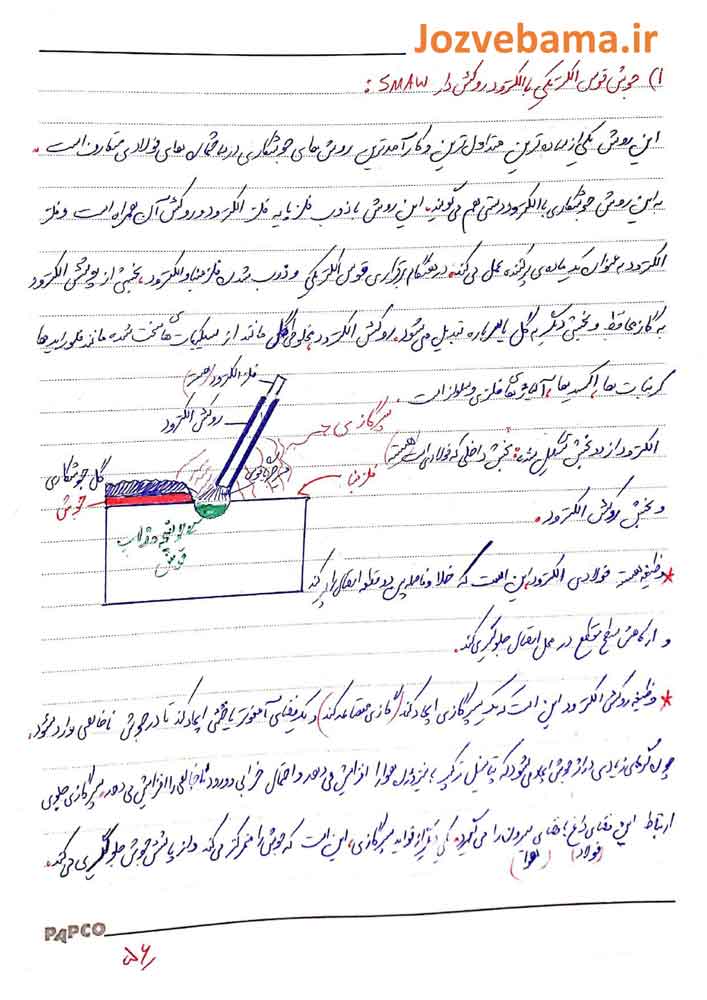 Jozvebama.ir
۱) جوش قوس الکتریکی با الکترود روکش دار SMAW :
این روش یکی از ساده ترین متداول ترین و کارآمدترین روش های جوشکاری در ساختمان های فولادی متعارف است .
به این روش جوشکاری با الکترود دستی هم می گویند. این روش با ذوب فلز پایه فلز الکترود و روکش آن همراه است و فلز
الکترود به عنوان یک ماده ی پرکننده عمل می کند. در هنگام برقراری قوس الکتریکی و ذوب شدن فلز مبنا و الکترود، بخشی از پوشش الکترود
به گاز محافظ و بخش دیگر به گل یا سرباره تبدیل می شود. روکش الکترود، مخلوطی گل مانند از سیلیکات های سخت شده مانند فلوریدها
کربنات ها، اکسیدها، آلیاژهای فلزی و سلولز است
فلز الکترود (هسته)
روکش الکترود
سپر گازی
فلز مبنا
گل جوشکاری
جوش
حوضچه مذاب
الکترود از دو بخش تشکیل شده: بخش داخلی که فولادی است (هسته)
و بخش روکش الکترود.
* وظیفه هسته فولادی الکترود، این است که خلا و فاصله بین دو قطعه اتصال را پر کند
و از کاهش سطح مقطع در محل اتصال جلوگیری کند.
* وظیفه روکش الکترود این است که یک سپر گازی ایجاد کند (گازی متصاعد کند) و یک فضای خنثی ایجاد کند تا در جوش ناخالصی وارد نشود.
چون گرمای زیادی در اثر جوش ایجاد می شود که پتانسیل ترکیب با نیتروژن هوا را افزایش می دهد و احتمال خرابی و ورود ناخالصی را افزایش می دهد. سپر گازی جلوی
ارتباط این فضای داغ با فضای بیرون را می گیرد. یکی دیگر از فواید سپر گازی، این است که جوش را متمرکز می کند و از پاشش جوش جلوگیری می کند.
(فولاد) (هوا)
PAPCO
۵۶